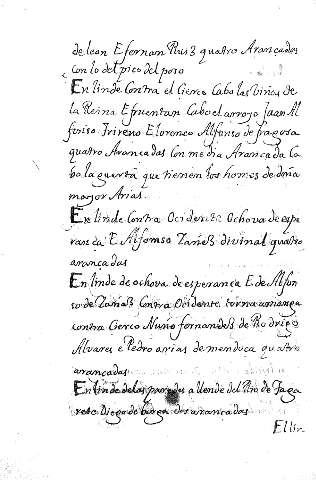 de leon E fernan Ruis quatro Arançadas
con lo del pico del poso
En linde Contra el Cierco Cabo las viñas de
la Reina E fruentan Cabo el arroyo Juan Al
fonso E lorenco Alfonso de fragosa
quatro Arancadas Con media Arancada Ca
bo la guerta que tienen los homes de doña
mayor Arias.
En linde Contra Ocidente Ochova de espe
ranca E. Alfonso divinal quatro
arancadas
En linde de ochova de esperança E. de Alfon
so de Contra Ocidente torna arriança
contra Cierco Nuño fernandes de Rodrigo
Alvares e Pedro arias de mendoca quatro
arancadas
En linde de las paredes allende del Rio de Jaga
rete Diego de burgos dos arancadas
El lin